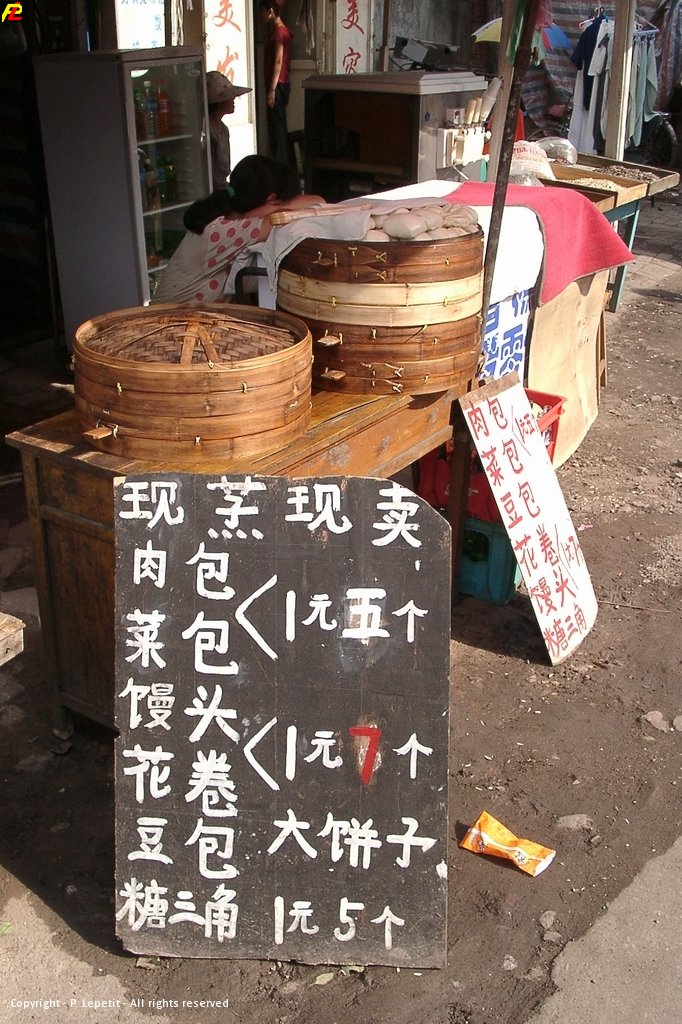 现蒸现卖
肉包
菜包
1元五个
馒头
花卷
1元7个
豆包 大饼子
糖三角 1元5个
肉包
菜包
豆包
花卷
馒头
糖三角
美
美
Copyright - P. Lepetit - All rights reserved